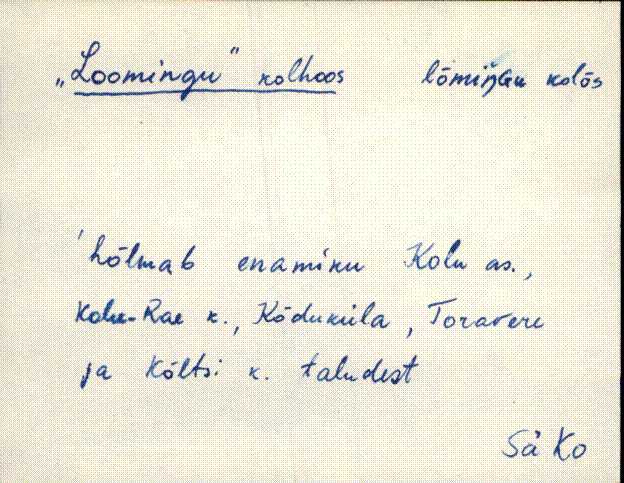 „Loomingu" kolhoos lōmiŋGu kolōs
'hõlmab enamiku Kolu as.,
Kolu-Rae k., Kõduküla, Toravere
ja Kõltsi k. taludest
Sä Ko